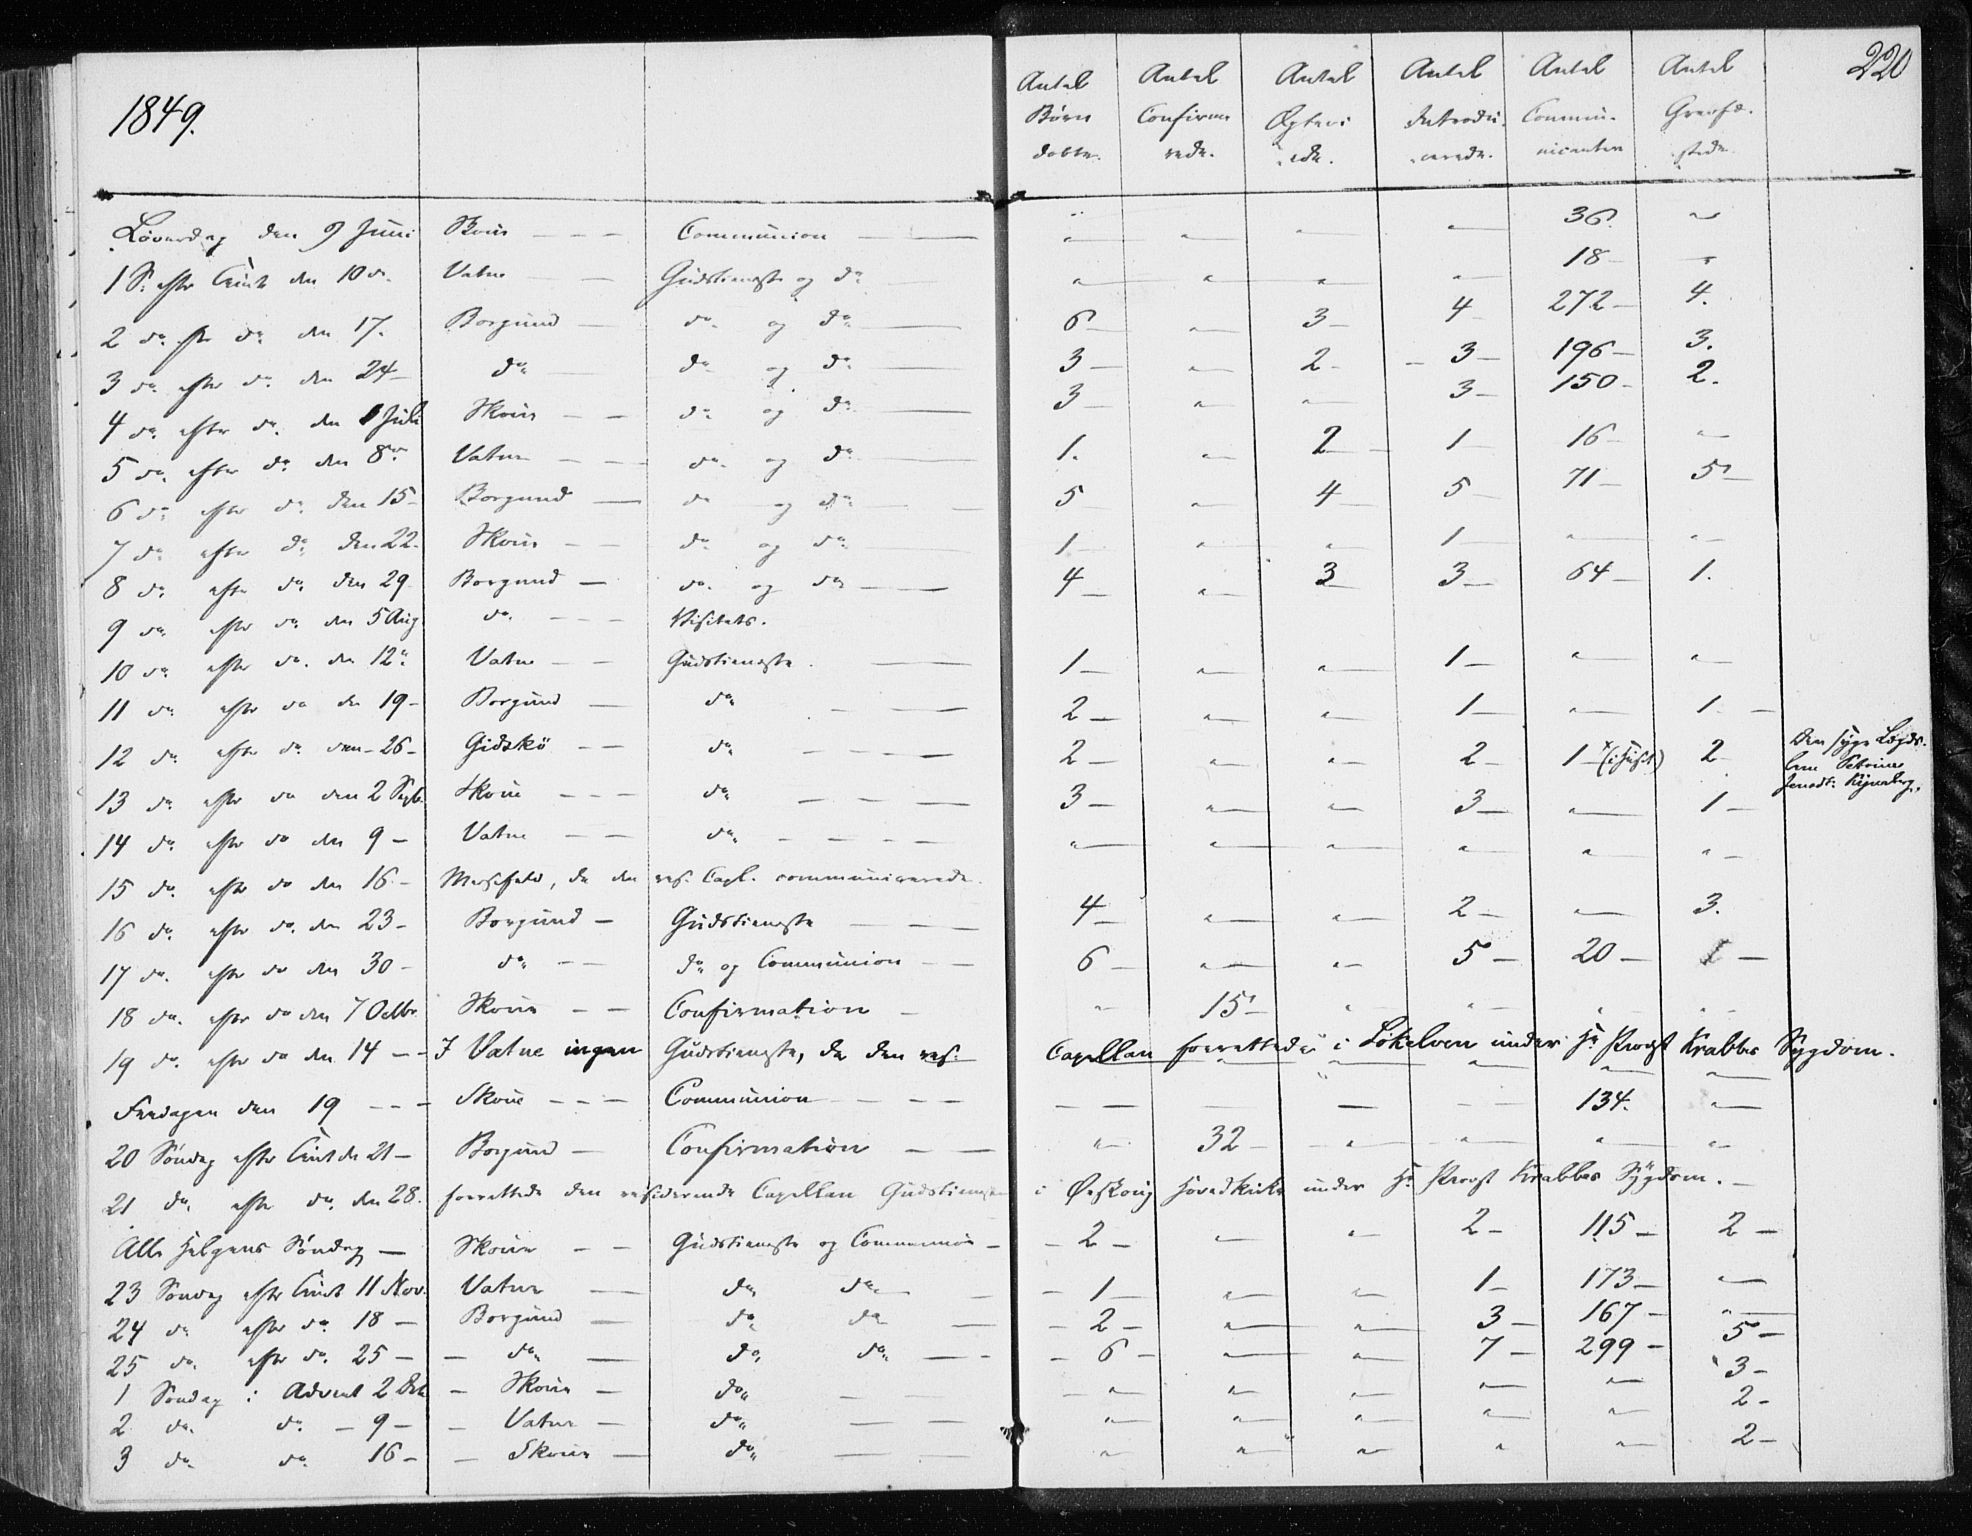 1849.
Antal Børn døbte. Antal Confirmerede. Antal Ægteviede. Antal Introducerede. Antal Communicanter Antal Gravfæstede. 220
Løverdag den 9 Juni Skoue Communion " " " " 36. "
1 S. efter Trinit den 10 do. Vatne Gudstieneste og do " " " " 18 "
2 do efter do den 17. Borgund do og do 6 " 3 4 272 4.
3 do efter do den 24 do do og do 3 " 2 3 196 3.
4 do efter do den 1 Juli Skoue do og do 3 " " 3 150 2.
5 do efter do den 8de Vatne do og do 1. " 2 1 16 "
6 do efter do den 15 Borgund do og do 5 " 4 5 71 5
7 do efter do den 22. Skoue do og do 1 " " 1 " "
8 do efter do den 29 Borgund do og do 4 " 3 3 64 1.
9 do efter do den 5 Aug. do Visitats.
10 do efter do den 12te Vatne Gudstieneste 1 " " 1 " "
11 do efter do den 19 Borgund do 2 " " 1 " 1
12 do efter do den 26 Gidskö do 2 " " 2 1 (i Huset) 2 Den syge
13 do efter do den 2 Sept. Skoue do 3 " " 3 " 1
14 do efter do den 9 Vatne do " " " " " "
15 do efter do den 16 Messefald, da den res. Capl. communicerede.
16 do efter do den 23 Borgund Gudstieneste 4 " " 2 " 3.
17 do efter do den 30 do do og Communion 6 " " 5 20 1
18 do efter do den 7 Octbr. Skoue Confirmation " 15 " " " "
19 do efter do den 14 I Vatne ingen Gudstieneste, da den res: Capellan forrettede i Sökelven under Hr Provst Krabbes Sygdom.
Fredagen den 19 Skoue Communion 134. "
20 Söndag efter Trinit den 21 Borgund Confirmation " 32 " " " "
21 do efter do den 28. forrettede den residerende Capellan Gudstienesten i Ørskoug Hovedkirke under Hr Provst Krabbes Sygdom.
Alle Helgens Söndag Skoue Gudstieneste og Communion 2 " " 2 115 2
23 Söndag efter Trinit 11 Nov. Vatne do do 1 " " 1 173 "
24 do efter do 18 Borgund do do 2 " " 3 167 "
25 do efter do 25 do do do 6 " " 7 299 5
1 Söndag i Advent 2 Dec Skoue do " " " " " 3
2 do do 9 Vatne do " " " " " 2
3 do do 16 Skoue do " " " " " 2